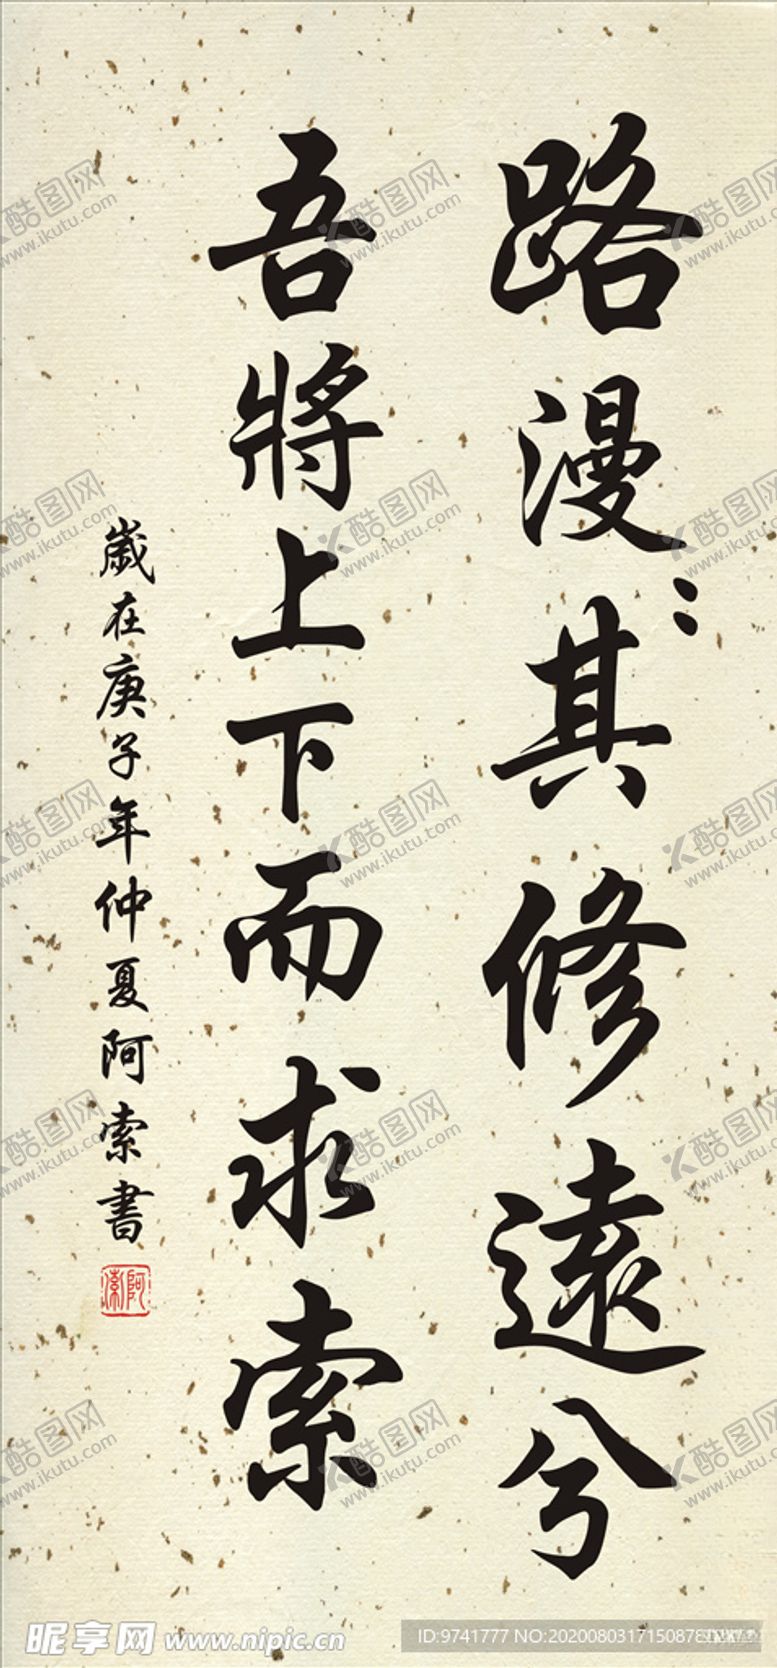 路漫〻其修遠兮
吾將上下而求索
歲在庚子年仲夏阿索書
阿索
昵享网 www.nipic.cn
ID:9741777 NO:20200803171508781
酷图网
www.ikutu.com